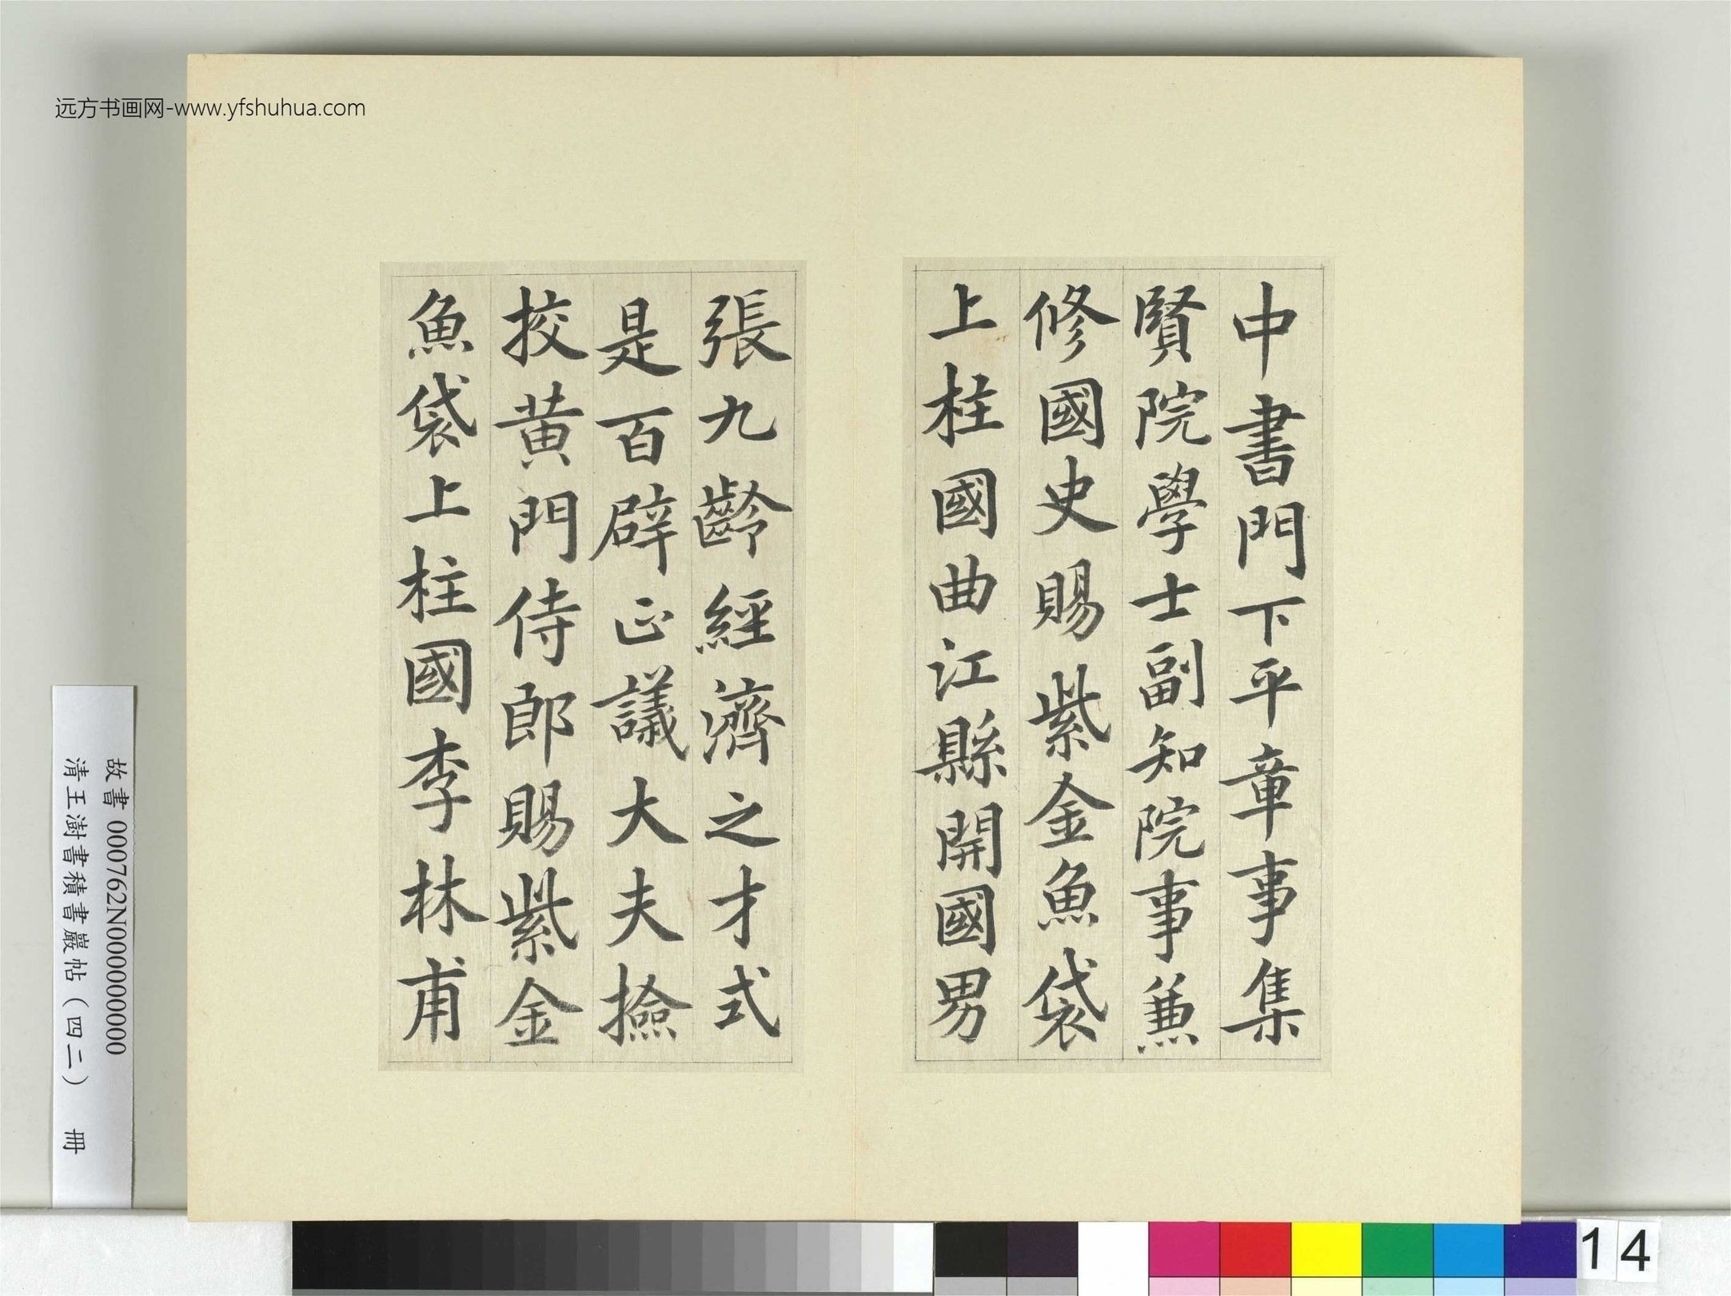 远方书画网-www.yfshuhua.com
中書門下平章事集
賢院學士副知院事蒹
修國史賜紫金魚袋
上柱國曲江縣開國男
張九齡經濟之才式
是百辟正議大夫撿
挍黄門侍郎賜紫金
魚袋上柱國李林甫
故書 000762N000000000
清王澍書積書巖帖(四二) 冊
14